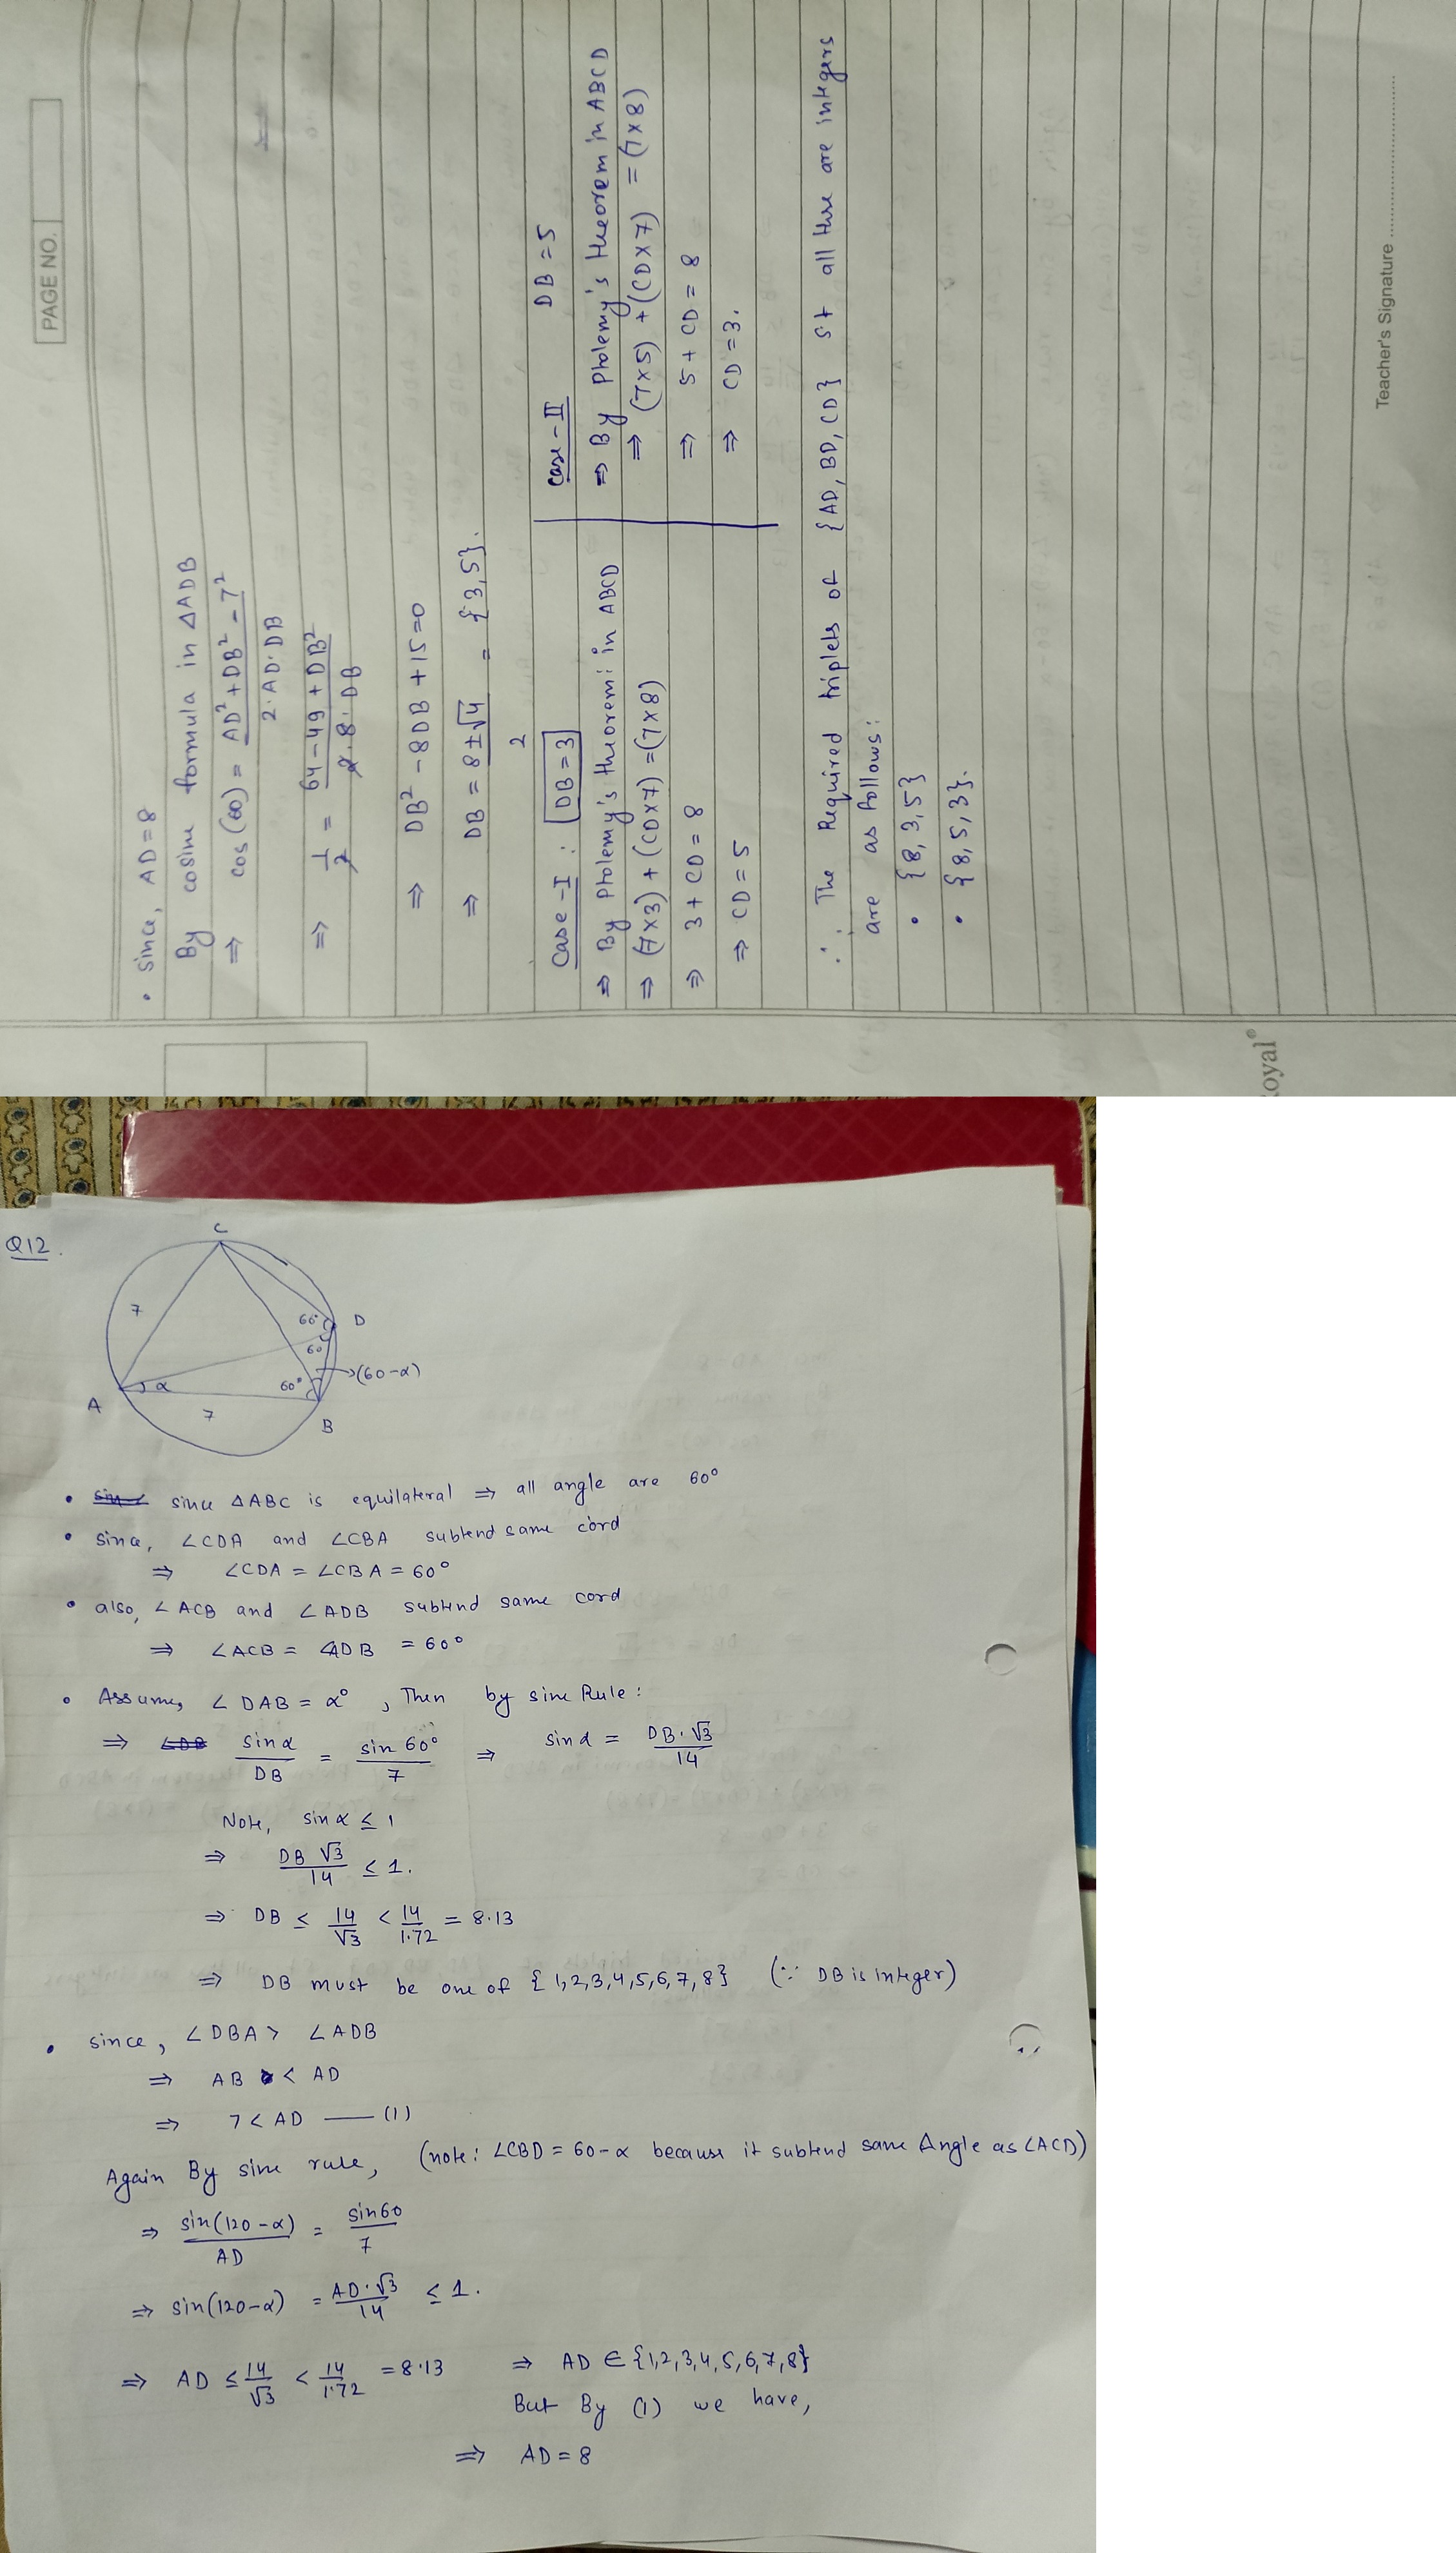 PAGE NO.
• since, AD=8
By cosine formula in △ADB
⇒ cos(60) = AD²+DB²-7² / 2·AD·DB
⇒ 1/2 = 64-49+DB² / 2·8·DB
⇒ DB²-8DB+15=0
⇒ DB = 8±√4 / 2 = {3,5}.
Case-I : DB=3
⇒ By Ptolemy's theorem in ABCD
⇒ (7×3)+(CD×7)=(7×8)
⇒ 3+CD=8
⇒ CD=5
Case-II DB=5
⇒ By Ptolemy's theorem in ABCD
⇒ (7×5)+(CD×7) =(7×8)
⇒ 5+CD=8
⇒ CD=3.
∴ The Required triplets of {AD, BD, CD} st all these are integers
are as follows:
• {8,3,5}
• {8,5,3}.
Teacher's Signature
oyal®
Q12.
C
7
60°
D
60
(60-α)
α
60°
A
7
B
• since △ABC is equilateral ⇒ all angle are 60°
• since, ∠CDA and ∠CBA subtend same cord
⇒ ∠CDA = ∠CBA = 60°
• also, ∠ACB and ∠ADB subtend same cord
⇒ ∠ACB = ∠ADB = 60°
• Assume, ∠DAB = α°, Then by sine Rule:
⇒ sinα / DB = sin 60° / 7 ⇒ sinα = DB·√3 / 14
Note, sinα ≤ 1
⇒ DB √3 / 14 ≤ 1.
⇒ DB ≤ 14/√3 < 14/1.72 = 8.13
⇒ DB must be one of {1,2,3,4,5,6,7,8} (∵ DB is integer)
• since, ∠DBA > ∠ADB
⇒ AB < AD
⇒ 7 < AD —— (1)
Again By sine rule, (note: ∠CBD = 60-α because it subtend same Angle as ∠ACD)
⇒ sin(120-α) / AD = sin60 / 7
⇒ sin(120-α) = AD·√3 / 14 ≤ 1.
⇒ AD ≤ 14/√3 < 14/1.72 = 8.13 ⇒ AD ∈ {1,2,3,4,5,6,7,8}
But By (1) we have,
⇒ AD = 8